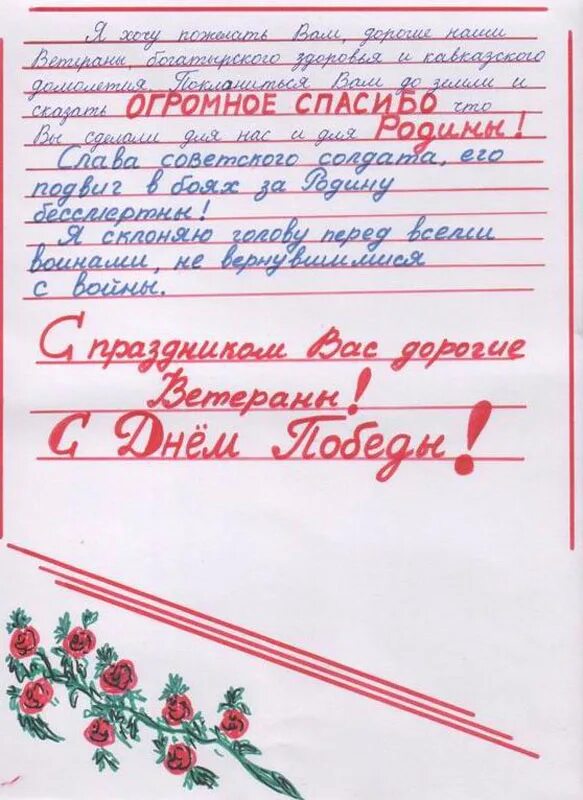 Я хочу пожелать Вам, дорогие наши
Ветераны, богатырского здоровья и кавказского
домолетия. Поклониться Вам до земли и
сказать ОГРОМНОЕ СПАСИБО что
Вы сделали для нас и для Родины!
Слава советского солдата, его
подвиг в боях за Родину
бессмертны!
Я склоняю голову перед всеми
воинами, не вернувшимися
с войны.
С праздником Вас дорогие
Ветераны!
С Днём Победы!